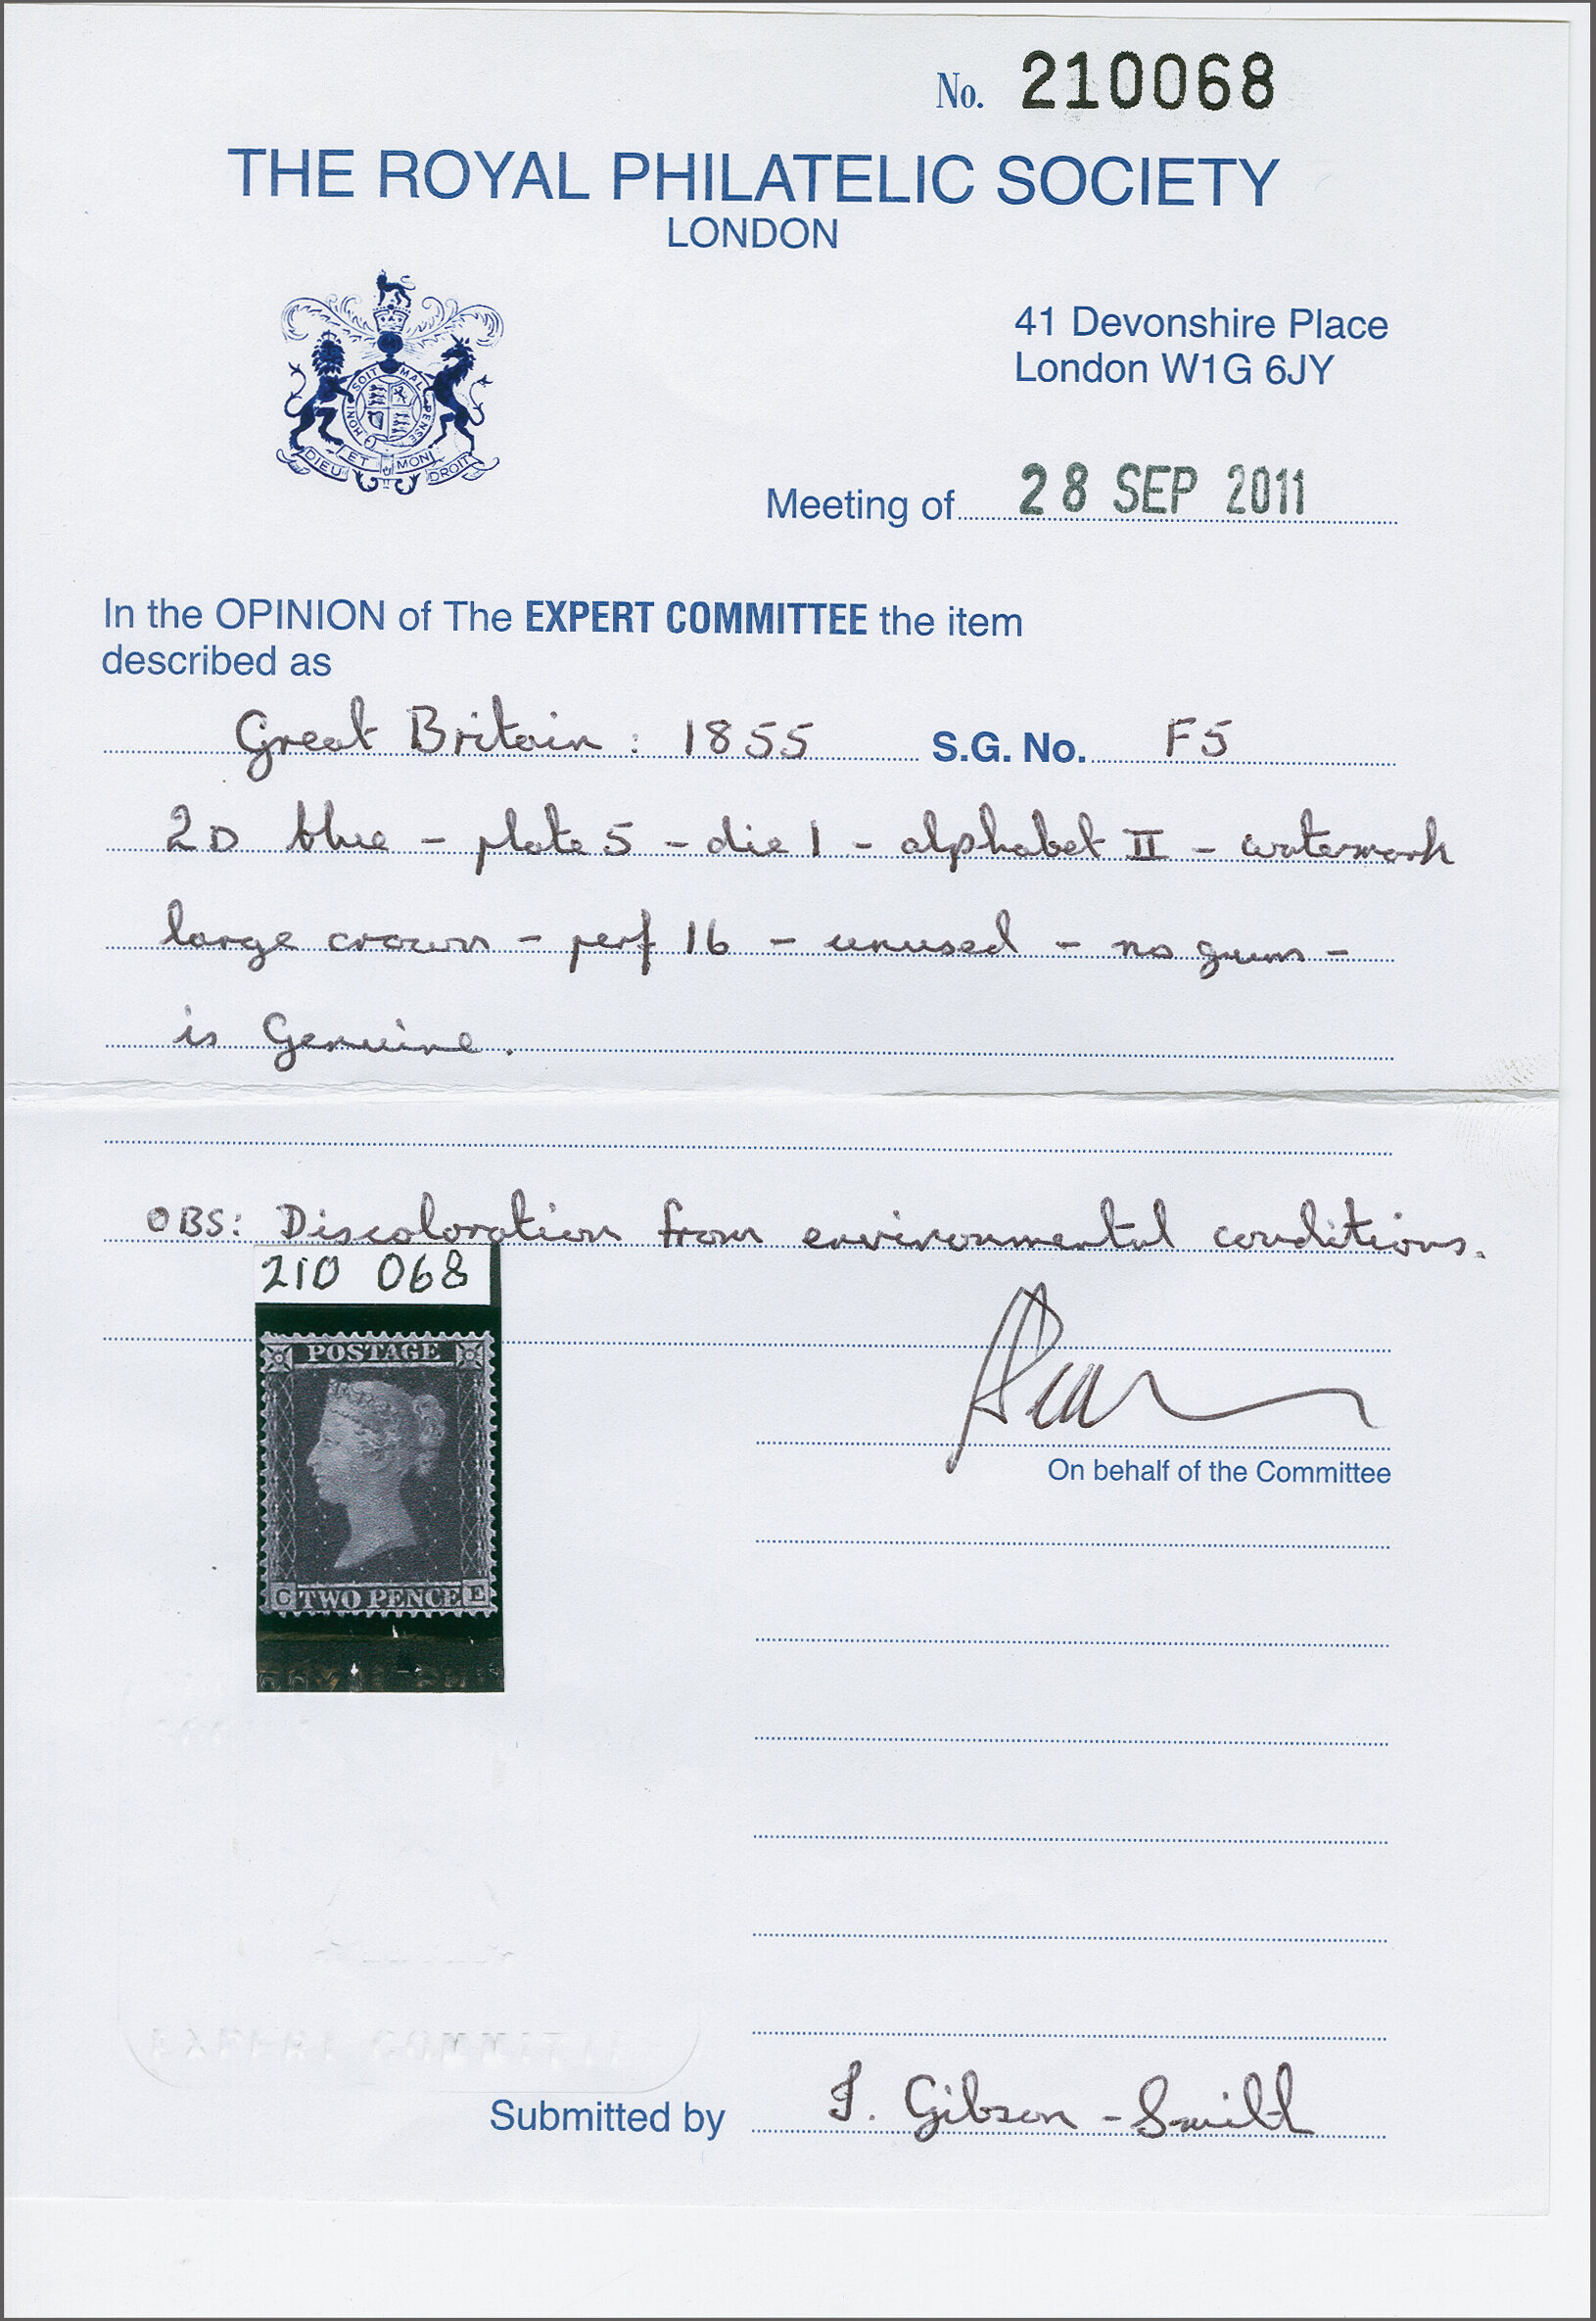 No. 210068
THE ROYAL PHILATELIC SOCIETY
LONDON
SOIT MAL
HONI PENSE
DIEU ET MON DROIT
41 Devonshire Place
London W1G 6JY
Meeting of 28 SEP 2011
In the OPINION of The EXPERT COMMITTEE the item
described as
Great Britain : 1855 S.G. No. F5
2D blue - plate 5 - die 1 - alphabet II - watermark
large crown - perf 16 - unused - no gum -
is Genuine.
OBS: Discoloration from environmental conditions.
210 068
POSTAGE
G TWO PENCE E
On behalf of the Committee
EXPERT COMMITTEE
Submitted by J. Gibson-Smith